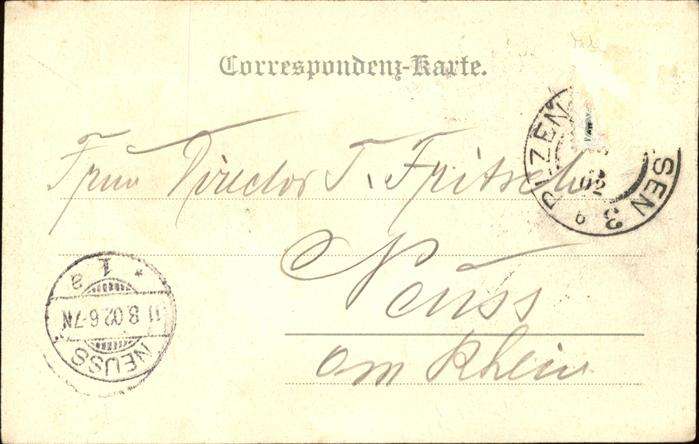 Correspondenz-Karte.
Frau Director T. Fritsche
Neuss
am Rhein
PILZEN 3
PLSEN
02
NEUSS
* 1 a
11.8.02.6-7N